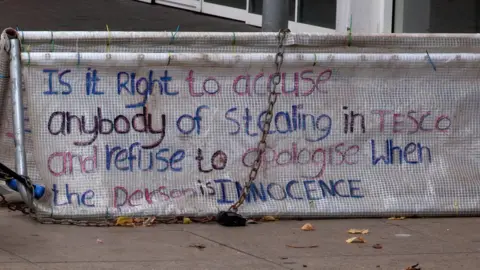 Is it Right to accuse
anybody of Stealing in TESCO
and refuse to apologise When
the person is INNOCENCE